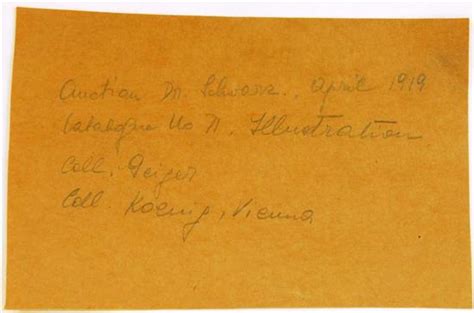 Auction Dr. Schwarz., April 1919
Catalogue No 71. Illustration
Coll. Geiger
Coll. Koenig, Vienna